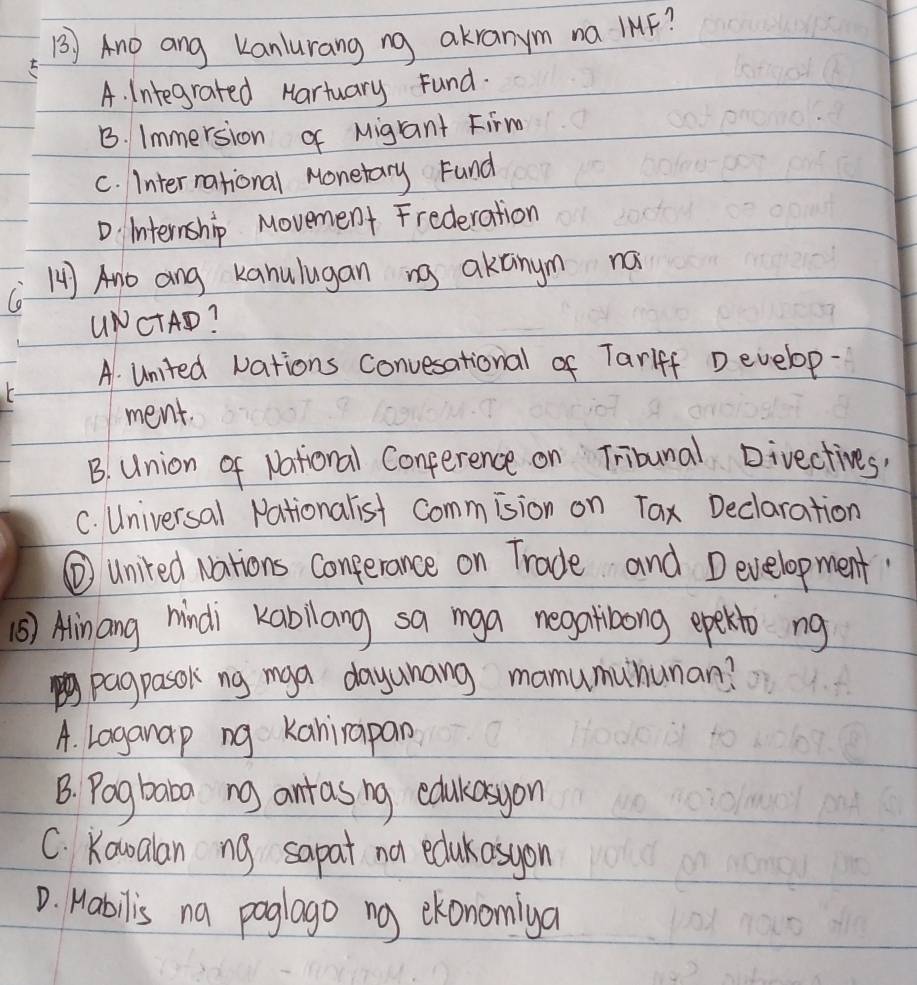 13.) Ano ang kanlurang ng akranym na IMF?
A. Integrated Martuary Fund.
B. Immersion of Migrant Firm
C. International Monetary Fund
D. Internship Movement Frederation
14) Ano ang kahulugan ng akranym na
UNCTAD?
A. United Nations Convesational of Tariff Develop-
ment.
B. Union of National Conference on Tribunal Divectives.
C. Universal Nationalist Commision on Tax Declaration
D United Nations Conferance on Trade and Development.
15) Alin ang hindi kabilang sa mga negatibong epekto ng
pagpasok ng mga dayuhang mamumuhunan?
A. Laganap ng kahirapan
B. Pagbaba ng antas ng edukasyon
C. Kawalan ng sapat na edukasyon
D. Mabilis na paglago ng ekonomiya